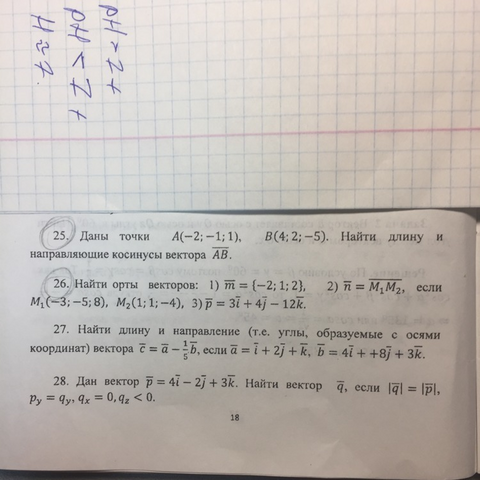 pH = 2+
pH < 7+
H ≈ 7.
25. Даны точки A(−2; −1; 1), B(4; 2; −5). Найти длину и
направляющие косинусы вектора A̅B̅.
26. Найти орты векторов: 1) m̅ = {−2; 1; 2}, 2) n̅ = M̅₁M̅₂, если
M₁(−3; −5; 8), M₂(1; 1; −4), 3) p̅ = 3i̅ + 4j̅ − 12k̅.
27. Найти длину и направление (т.е. углы, образуемые с осями
координат) вектора c̅ = a̅ − 1/5 b̅, если a̅ = i̅ + 2j̅ + k̅, b̅ = 4i̅ + +8j̅ + 3k̅.
28. Дан вектор p̅ = 4i̅ − 2j̅ + 3k̅. Найти вектор q̅, если |q̅| = |p̅|,
pᵧ = qᵧ, qₓ = 0, q_z < 0.
18